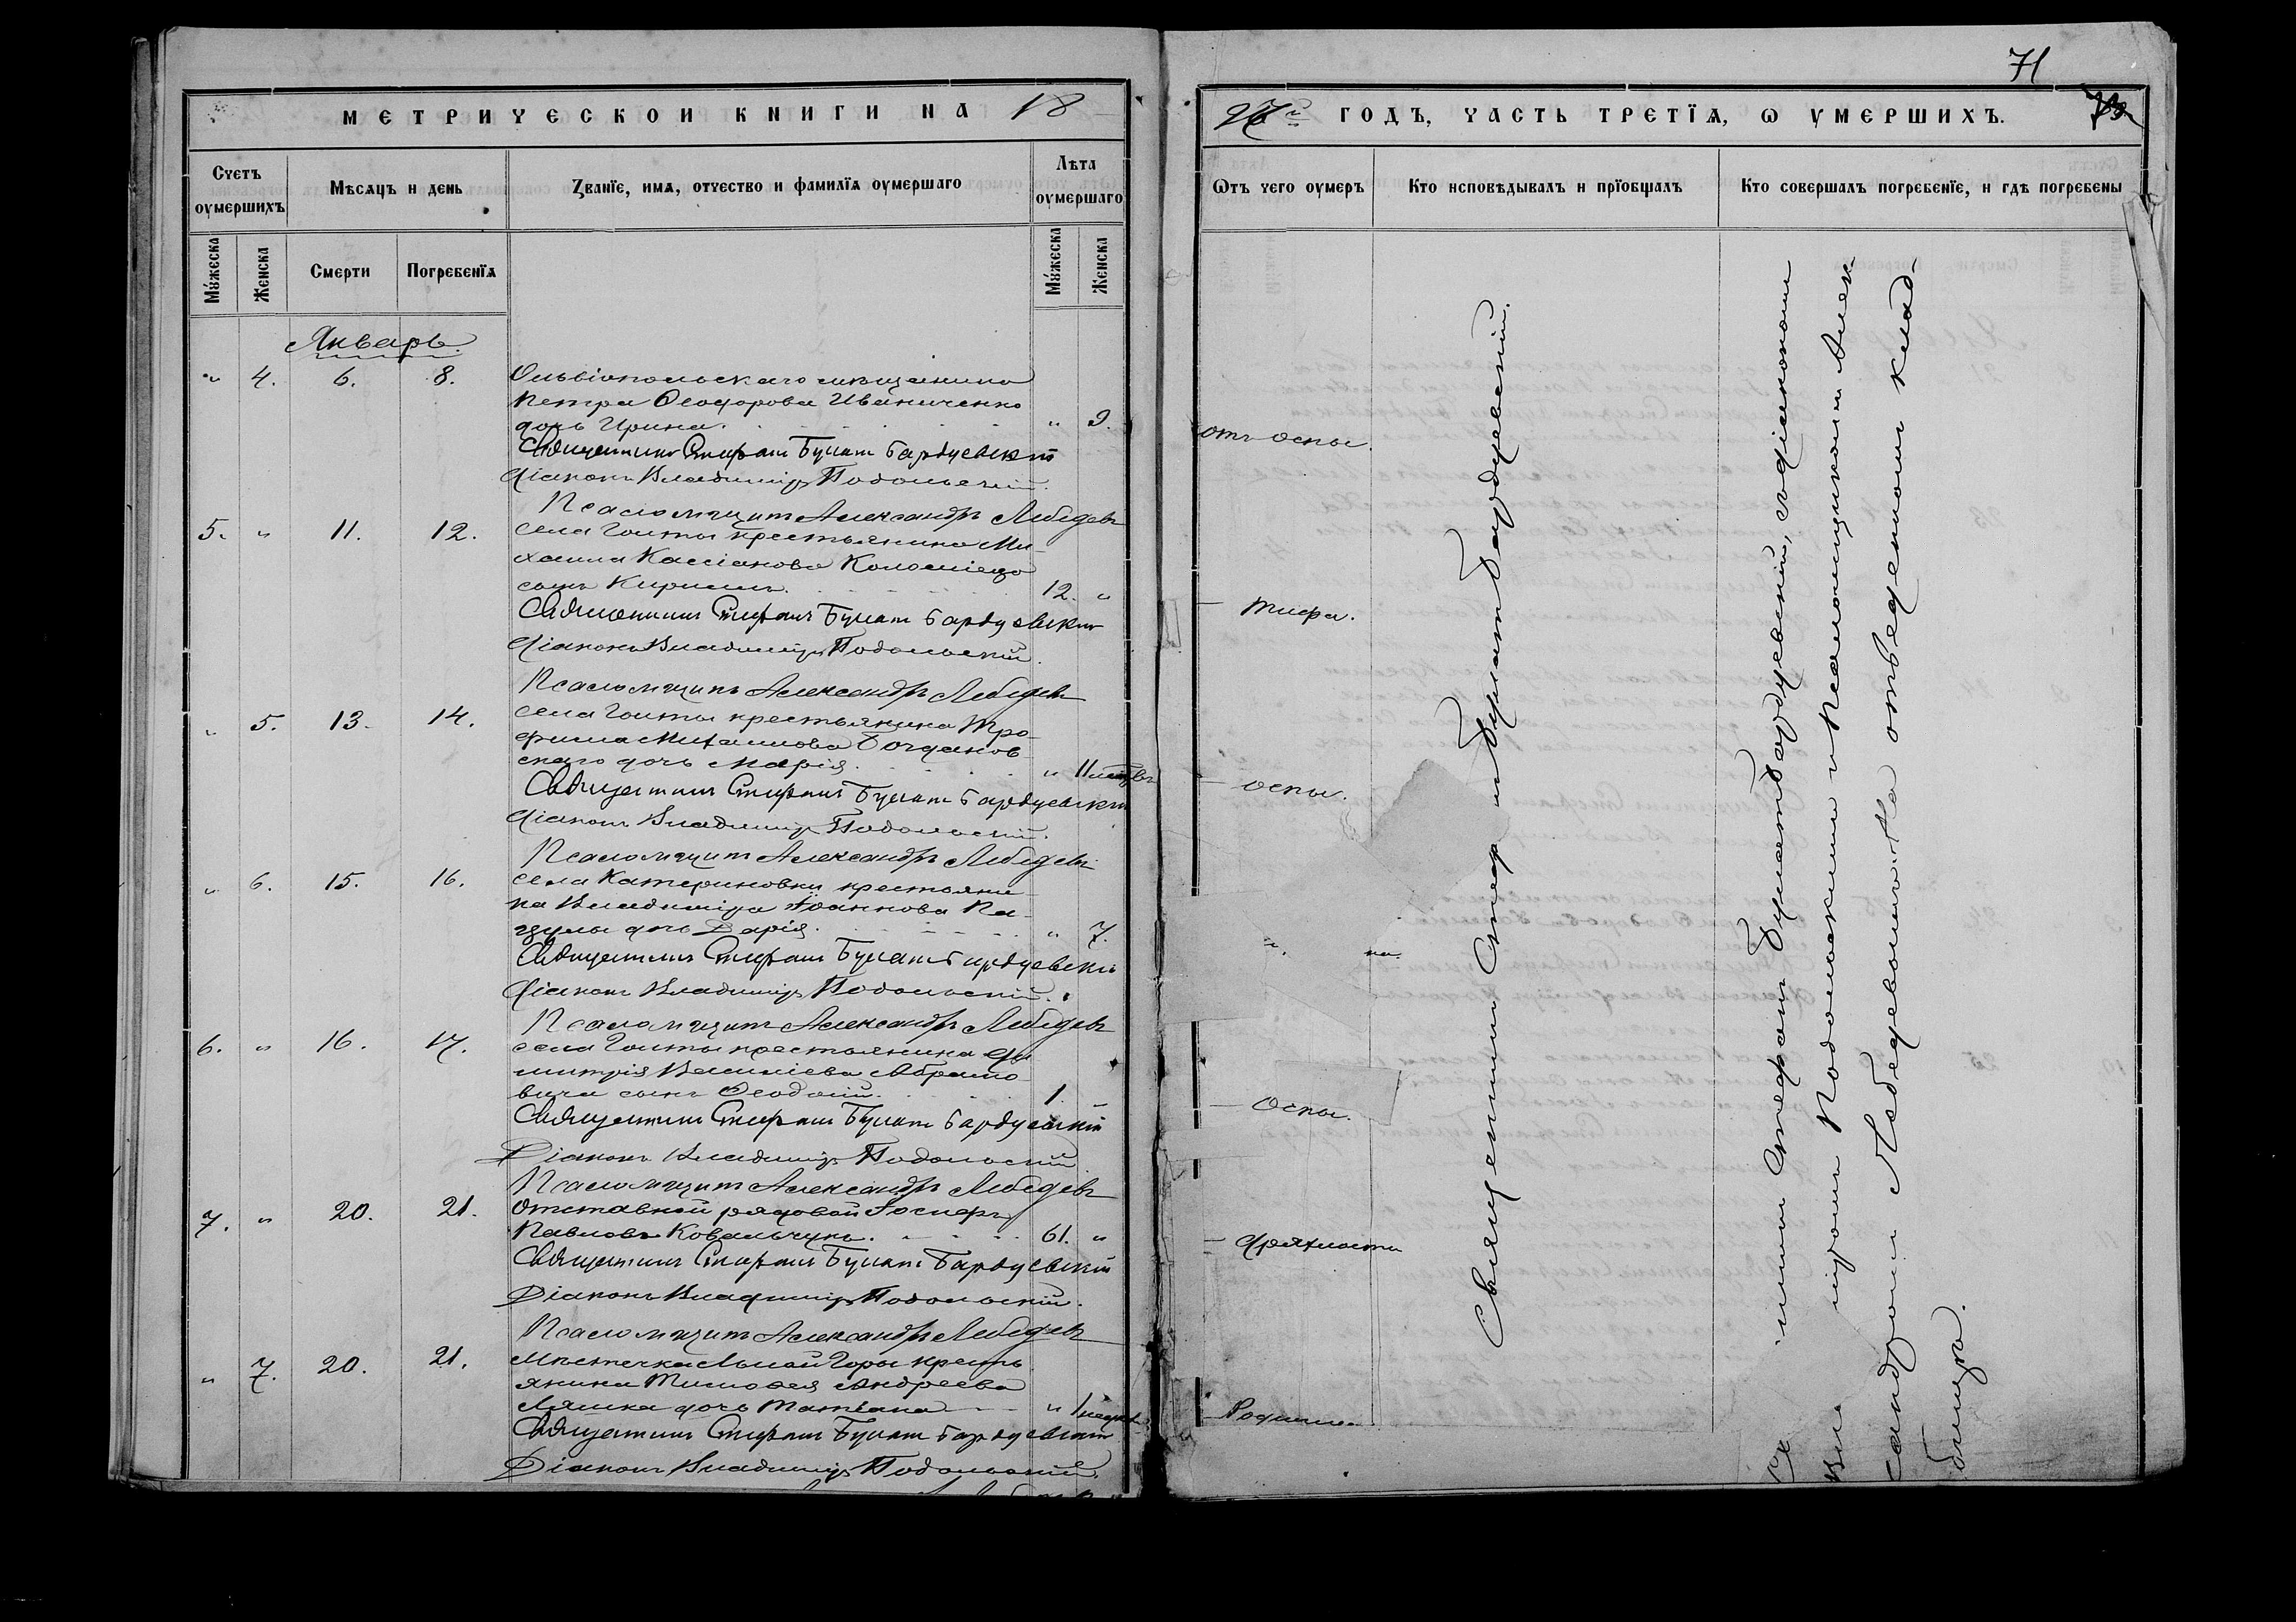 МЕТРИЧЕСКОЙ КНИГИ НА 18
Счетъ оумершихъ
Мѣсяцъ и день
Званїе, имя, отчество и фамилїя оумершаго
Лѣта оумершаго
Мужеска
Женска
Смерти
Погребенїя
Мужеска
Женска
Январь.
" 4. 6. 8. Ольвіопольскаго мѣщанина
Петра Ѳеодорова Иваниченко
дочь Ирина. " 9.
Священникъ Стефанъ Булатъ Бардуевскій
Діаконъ Владиміръ Подольскій.
Псаломщикъ Александръ Лебедевъ
5. " 11. 12. села Голты крестьянина Ми-
хаила Кассіанова Коломійца
сынъ Кириллъ. 12. "
Священникъ Стефанъ Булатъ Бардуевскій
Діаконъ Владиміръ Подольскій.
Псаломщикъ Александръ Лебедевъ
" 5. 13. 14. села Голты крестьянина Тро-
фима Михаилова Богданов-
скаго дочь Марія. " 11 мѣсяцевъ
Священникъ Стефанъ Булатъ Бардуевскій
Діаконъ Владиміръ Подольскій.
Псаломщикъ Александръ Лебедевъ
" 6. 15. 16. села Катериновки крестьяни-
на Владиміра Іоаннова Па-
цулы дочь Дарія. " 7.
Священникъ Стефанъ Булатъ Бардуевскій
Діаконъ Владиміръ Подольскій.
Псаломщикъ Александръ Лебедевъ
6. " 16. 17. села Голты крестьянина Ди-
митрія Василіева Абрамо-
вича сынъ Ѳеодосій. 1
Священникъ Стефанъ Булатъ Бардуевскій
Діаконъ Владиміръ Подольскій
Псаломщикъ Александръ Лебедевъ
7. " 20. 21. Отставной рядовой Іосифъ
Павловъ Ковальчукъ. 61. "
Священникъ Стефанъ Булатъ Бардуевскій
Діаконъ Владиміръ Подольскій.
Псаломщикъ Александръ Лебедевъ
" 7. 20. 21. Мѣстечка Лысой Горы кресть-
янина Тимофея Андреева
Ляшка дочь Татіана " 1 недѣл
Священникъ Стефанъ Булатъ Бардуевскій
Діаконъ Владиміръ Подольскій.
71
ГОДЪ, ЧАСТЬ ТРЕТЇЯ, Ѡ УМЕРШИХЪ.
Ѿтъ чего оумеръ
Кто исповѣдывалъ и прїобщалъ
Кто совершалъ погребенїе, и гдѣ погребены
отъ оспы.
— тифа.
— оспы.
— Оспы.
— дряхлости
— Родимца
Священникъ Стефанъ Булатъ Бардуевскій.
никъ Стефанъ Булатъ Бардуевскій, съ діакономъ
міромъ Подольскимъ и Псаломщикомъ Алек-
сандромъ Лебедевымъ. На отведенномъ клад-
бищѣ.